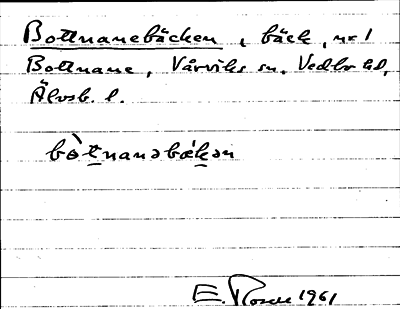 Bottnanebäcken, bäck, nr 1
Bottnane, Vårviks sn, Vedbo hd,
Älvsb. l.
bòt̲nanəbǽk̲ən
E. Rosell 1961